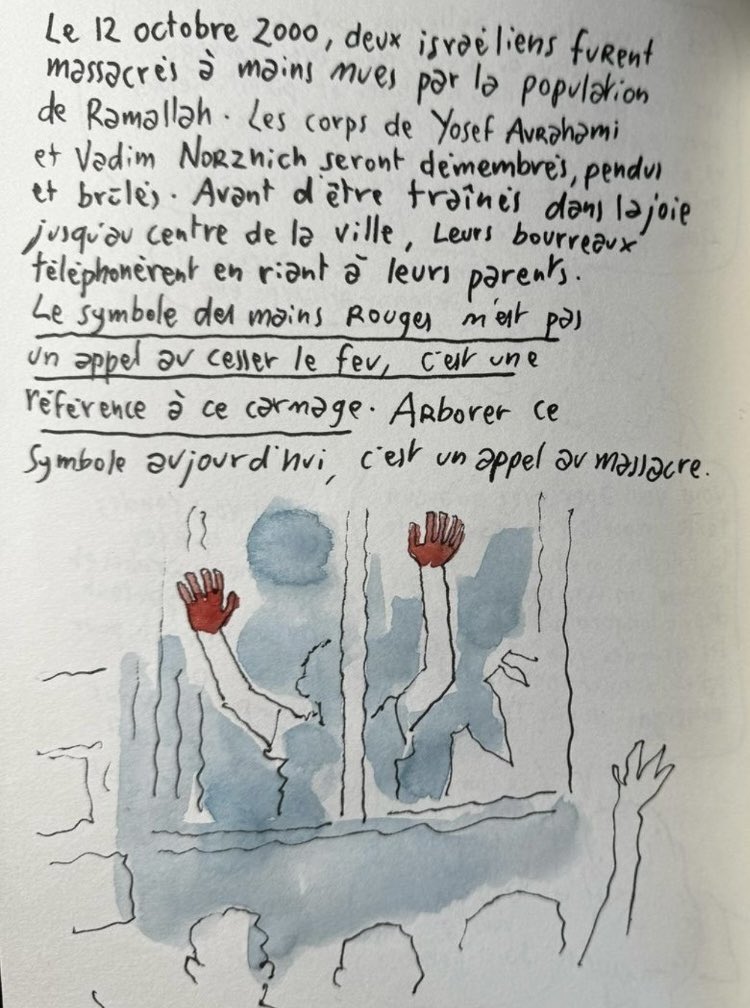 Le 12 octobre 2000, deux israéliens furent
massacrés à mains nues par la population
de Ramallah. Les corps de Yosef Avrahami
et Vadim Norznich seront démembrés, pendus
et brûlés. Avant d'être traînés dans la joie
jusqu'au centre de la ville, leurs bourreaux
téléphonèrent en riant à leurs parents.
Le symbole des mains rouges n'est pas
un appel au cesser le feu, c'est une
référence à ce carnage. Arborer ce
symbole aujourd'hui, c'est un appel au massacre.